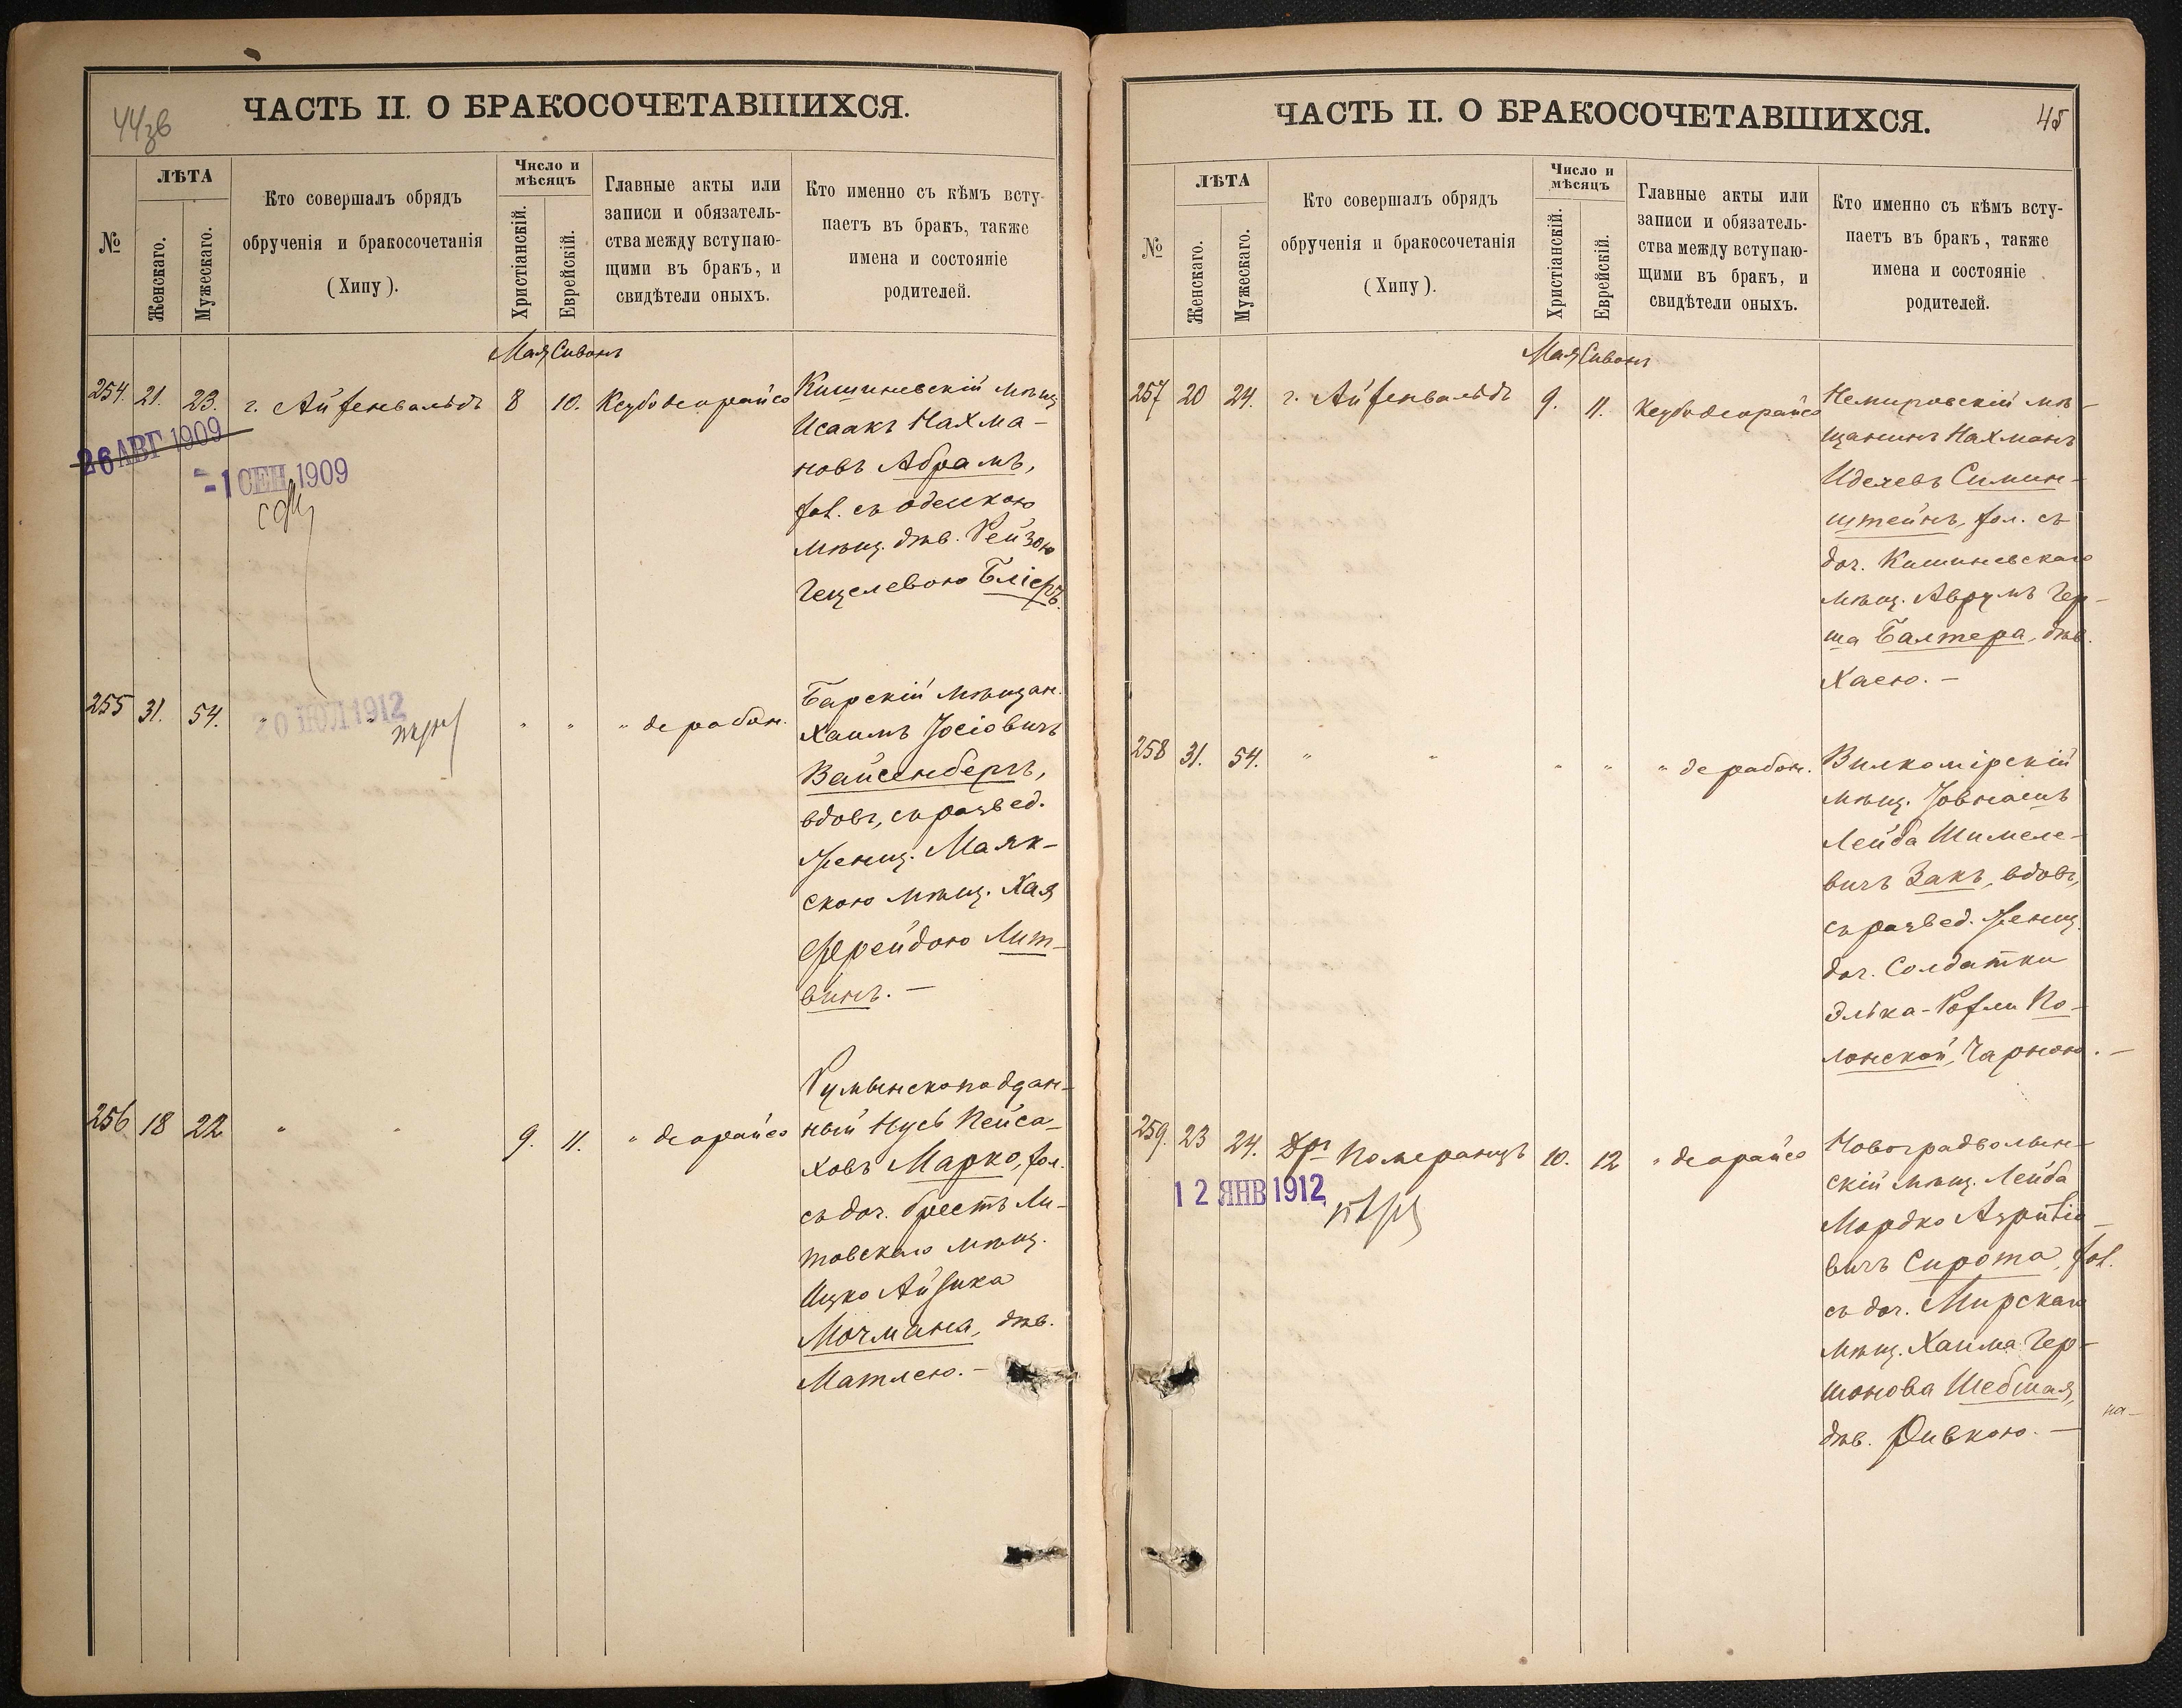 44зв
ЧАСТЬ II. О БРАКОСОЧЕТАВШИХСЯ.
№
ЛѢТА
Женскаго.
Мужескаго.
Кто совершалъ обрядъ
обрученія и бракосочетанія
(Хипу).
Число и
мѣсяцъ
Христіанскій.
Еврейскій.
Главные акты или
записи и обязатель-
ства между вступаю-
щими въ бракъ, и
свидѣтели оныхъ.
Кто именно съ кѣмъ всту-
паетъ въ бракъ, также
имена и состояніе
родителей.
Мая Сивонъ
254. 21. 23. г. Айзенвальдъ 8 10. Ксубо деорайсо
26 АВГ 1909
- 1 СЕН 1909
Кишиневскій мѣщ
Исаакъ Нахма-
новъ Абрамъ,
хол. съ одескою
мѣщ. дѣв. Рейзою
Гецелевою Бліеръ.
255 31. 54. " " " " " де рабон.
20 ИЮЛ 1912
Барскій мѣщан.
Хаимъ Іосіовичъ
Вайсенбергъ,
вдовъ, съ развед.
женщ. Маяк-
скою мѣщ. Хая
Фрейдою Лит-
винъ. –
256 18 22 " " 9. 11. " деорайсо
Румынскоподдан-
ный Нусь Пейса-
ховъ Марко, хол.
съ доч. Брестъ Ли-
товскаго мѣщ.
Ицко Айзика
Мочмана, дѣв.
Матлею. –
ЧАСТЬ II. О БРАКОСОЧЕТАВШИХСЯ.
45
№
ЛѢТА
Женскаго.
Мужескаго.
Кто совершалъ обрядъ
обрученія и бракосочетанія
(Хипу).
Число и
мѣсяцъ
Христіанскій.
Еврейскій.
Главные акты или
записи и обязатель-
ства между вступаю-
щими въ бракъ, и
свидѣтели оныхъ.
Кто именно съ кѣмъ всту-
паетъ въ бракъ, также
имена и состояніе
родителей.
Мая Сивонъ
257 20 24. г. Айзенвальдъ 9. 11. Ксубо деорайсо
Немировскій мѣ-
щанинъ Нахманъ
Иделевъ Симин-
штейнъ, хол. съ
доч. Кишиневскаго
мѣщ. Аврумъ Гер-
ша Балтера, дѣв.
Хаею. –
258 31. 54. " " " " " де рабон.
Вилкомірскій
мѣщ. Іовнасъ
Лейба Шимеле-
вичъ Закъ, вдовъ,
съ развед. женщ.
доч. Солдатки
Элька-Рохли По-
лонской, Чарною. –
259. 23 24. Дръ Померанцъ 10. 12 " деорайсо
12 ЯНВ 1912
Новоградволын-
скій мѣщ. Лейба
Мордко
вичъ Сирота, хол.
съ доч. Мирскаго
мѣщ. Хаима Гер-
шонова Шебшая,
дѣв. Ривкою. –